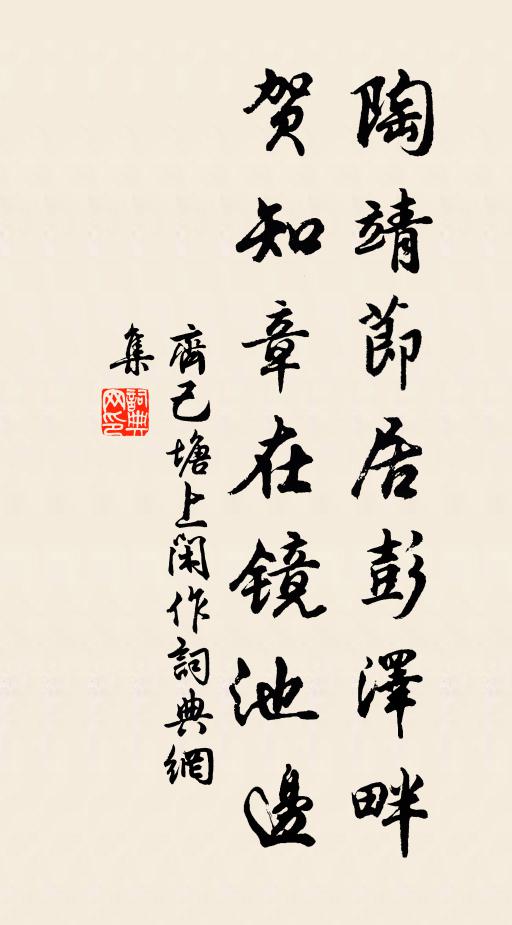 陶靖節居彭澤畔
贺知章在镜池邊
齊己塘上閑作詞典網
集
詞典
网印